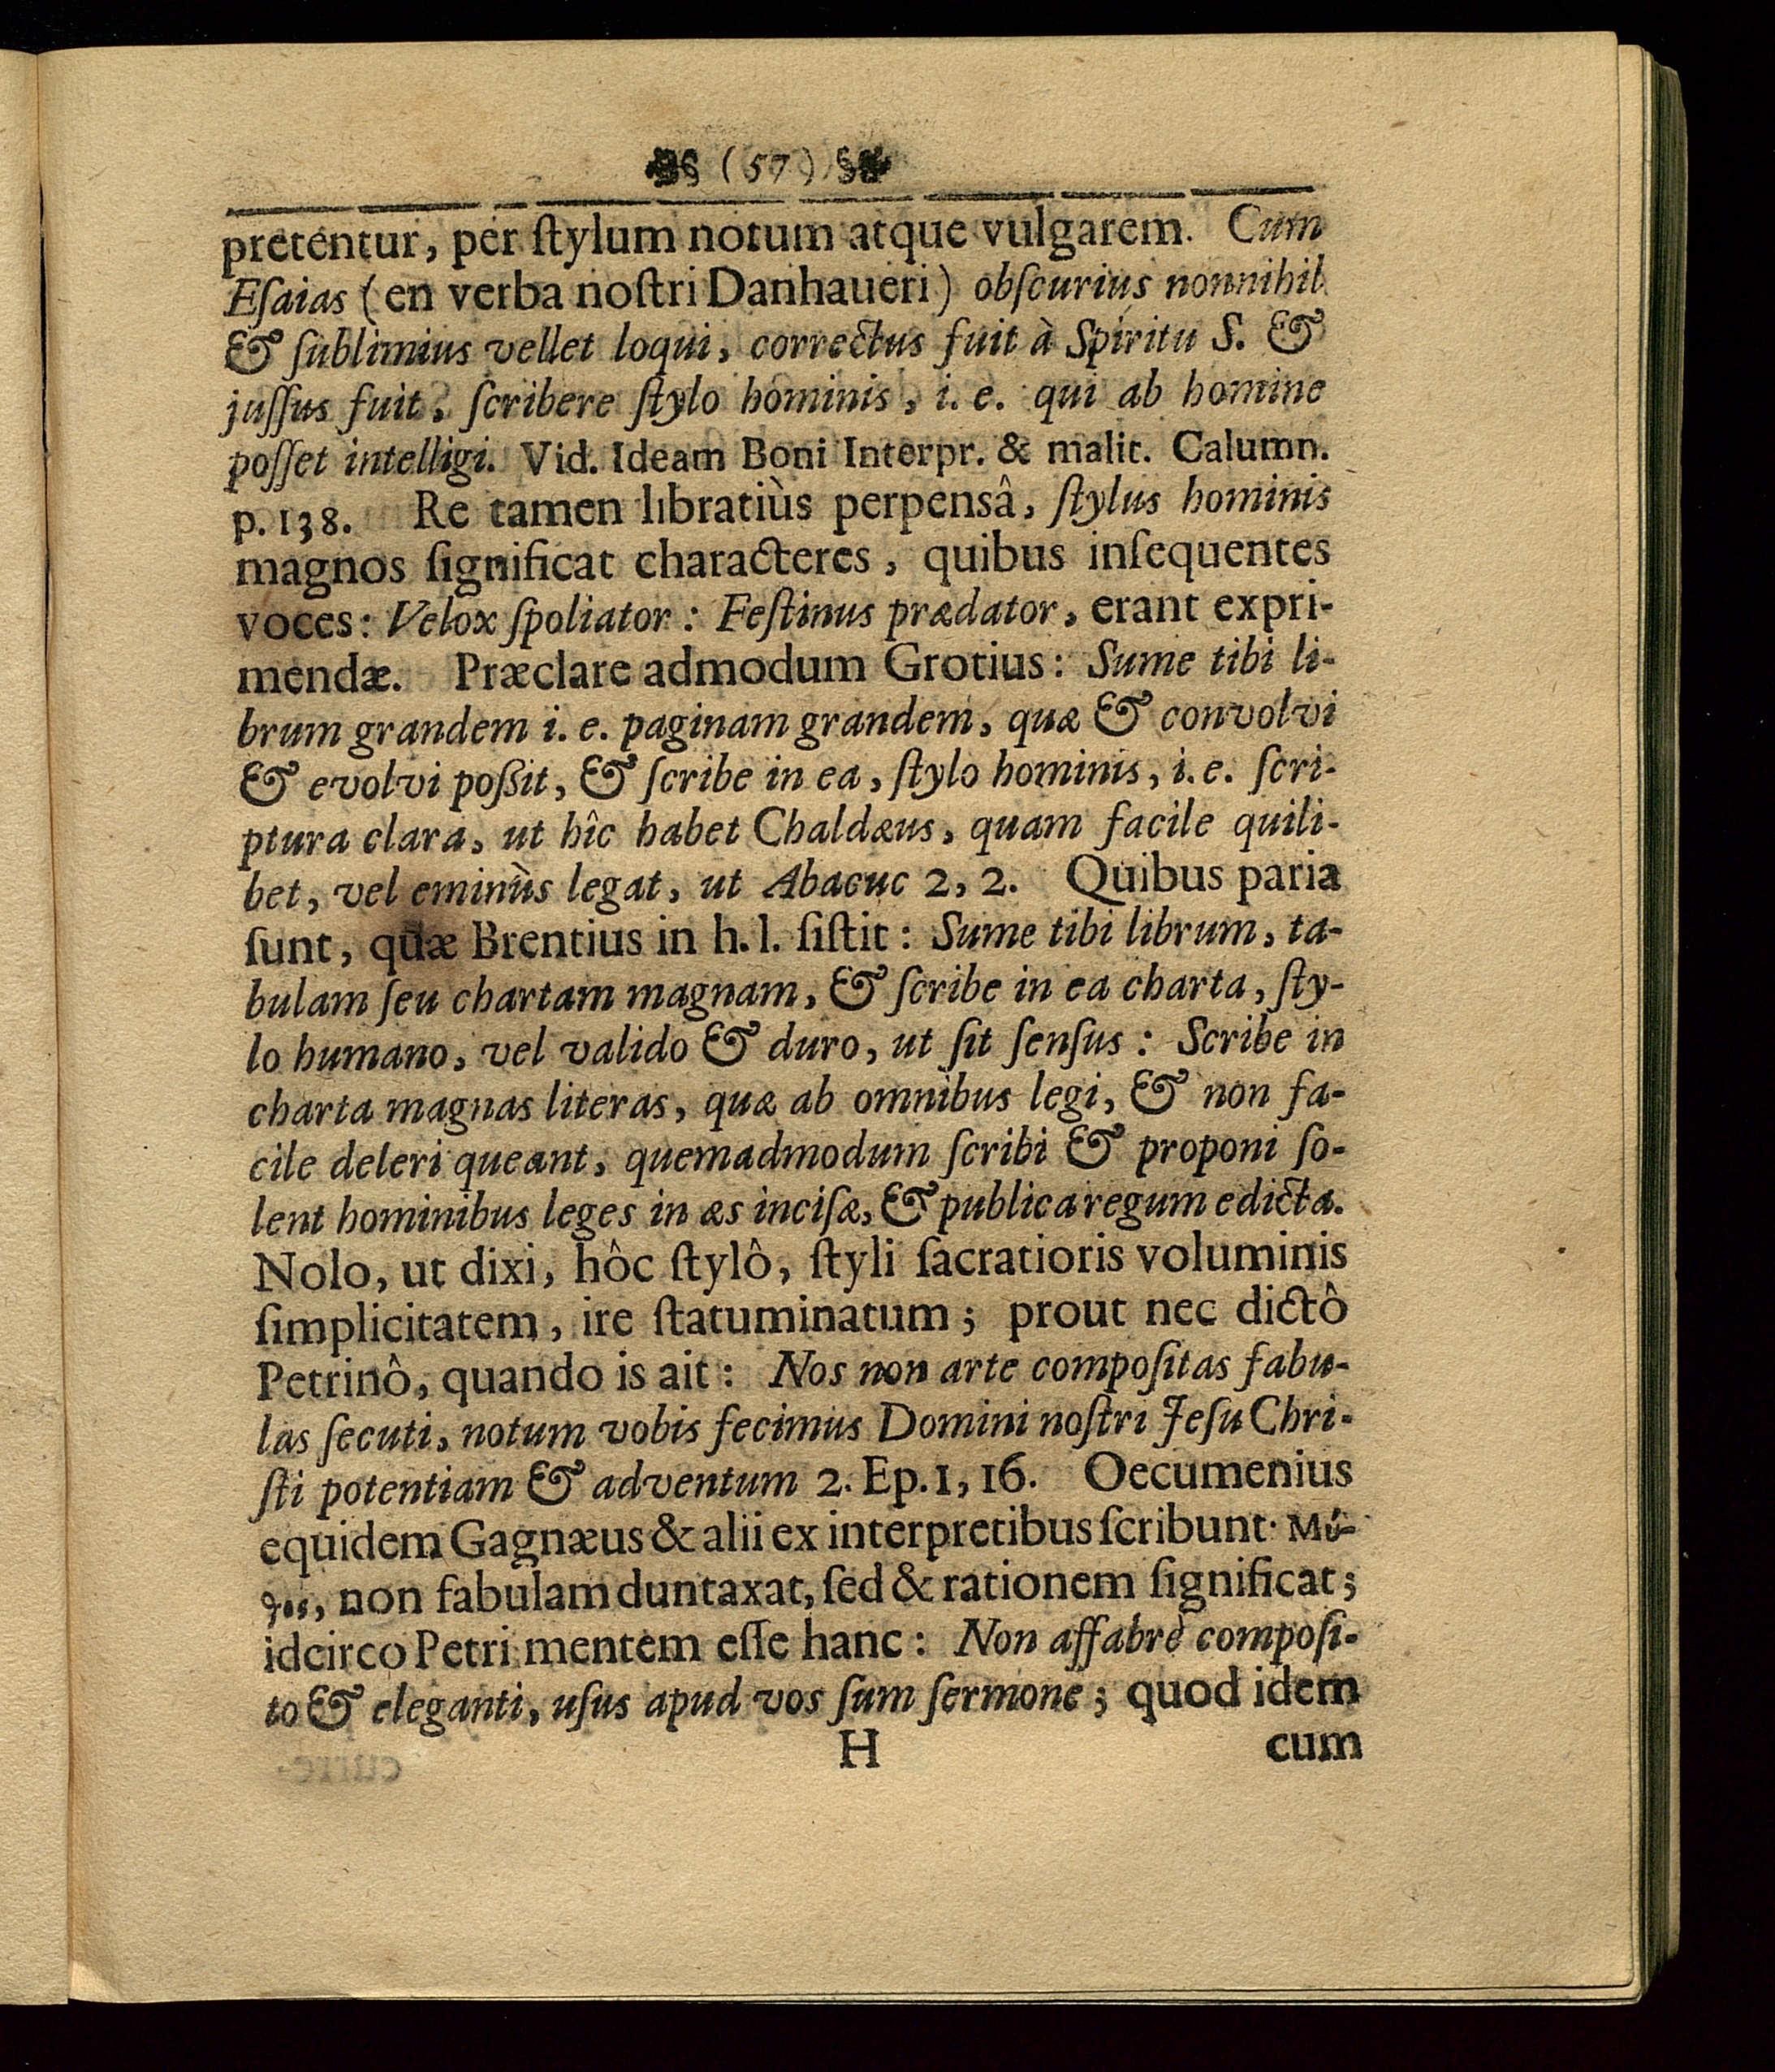 (57)
pretentur, per ſtylum notum atque vulgarem. Cum
Eſaias (en verba noſtri Danhaueri) obſcurius nonnihil
& ſublimius vellet loqui, correctus fuit à Spiritu S. &
juſſus fuit, ſcribere ſtylo hominis, i. e. qui ab homine
poſſet intelligi. Vid. Ideam Boni Interpr. & malit. Calumn.
p. 138. Re tamen libratiùs perpensâ, ſtylus hominis
magnos ſignificat characteres, quibus inſequentes
voces: Velox ſpoliator: Feſtinus prædator, erant expri-
mendæ. Præclare admodum Grotius: Sume tibi li-
brum grandem i. e. paginam grandem, quæ & convolvi
& evolvi poßit, & ſcribe in ea, ſtylo hominis, i. e. ſcri-
ptura clara, ut hîc habet Chaldæus, quam facile quili-
bet, vel eminùs legat, ut Abacuc 2, 2. Quibus paria
ſunt, quæ Brentius in h. l. ſiſtit: Sume tibi librum, ta-
bulam ſeu chartam magnam, & ſcribe in ea charta, ſty-
lo humano, vel valido & duro, ut ſit ſenſus: Scribe in
charta magnas literas, quæ ab omnibus legi, & non fa-
cile deleri queant, quemadmodum ſcribi & proponi ſo-
lent hominibus leges in æs inciſæ, & publica regum edicta.
Nolo, ut dixi, hôc ſtylô, ſtyli ſacratioris voluminis
ſimplicitatem, ire ſtatuminatum; prout nec dictô
Petrinô, quando is ait: Nos non arte compoſitas fabu-
las ſecuti, notum vobis fecimus Domini noſtri Jeſu Chri-
ſti potentiam & adventum 2. Ep. 1, 16. Oecumenius
equidem Gagnæus & alii ex interpretibus ſcribunt· Μύ-
θος, non fabulam duntaxat, ſed & rationem ſignificat;
idcirco Petri mentem eſſe hanc: Non affabrè compoſi-
to & eleganti, uſus apud vos ſum ſermone; quod idem
H cum